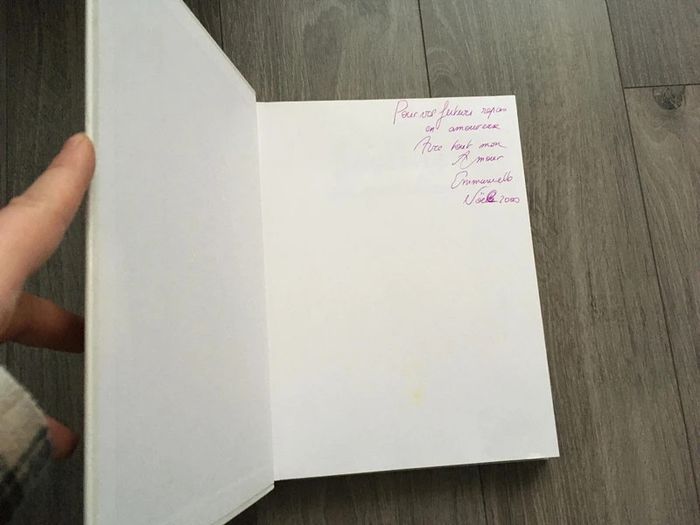 Pour vos futurs repas
en amoureux
Avec tout mon
Amour
Emmanuelle
Noël 2000